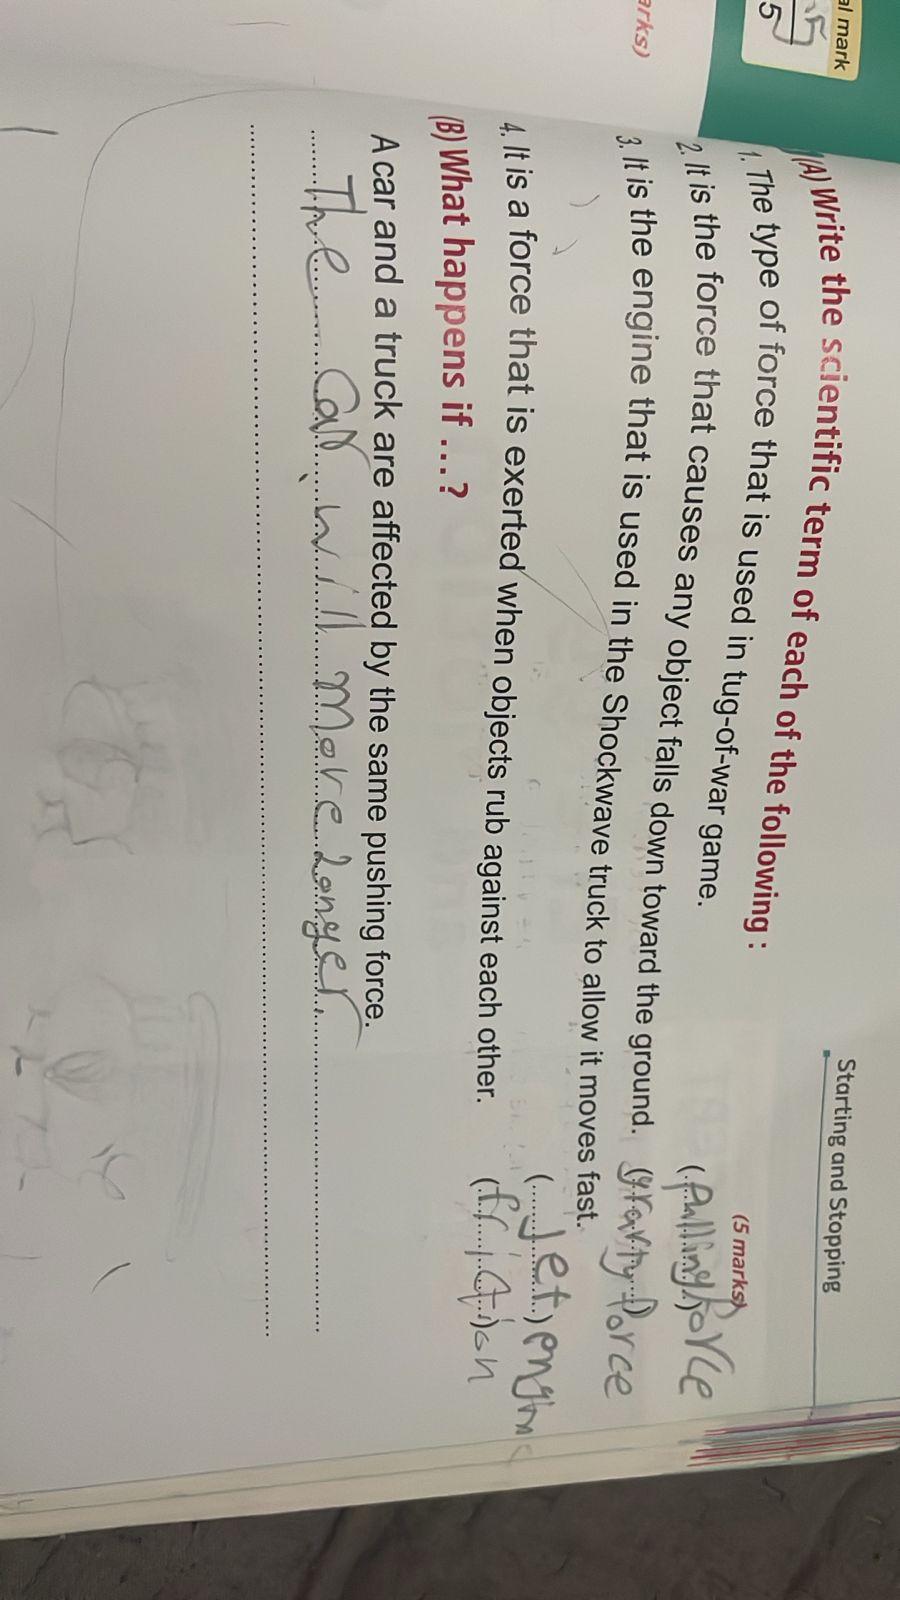 al mark
5
5
arks)
Starting and Stopping
(A) Write the scientific term of each of the following :
(5 marks)
1. The type of force that is used in tug-of-war game. (pulling force)
2. It is the force that causes any object falls down toward the ground. (gravity force)
3. It is the engine that is used in the Shockwave truck to allow it moves fast. (Jet engine)
4. It is a force that is exerted when objects rub against each other. (friction)
(B) What happens if ...?
A car and a truck are affected by the same pushing force.
The car will move longer.